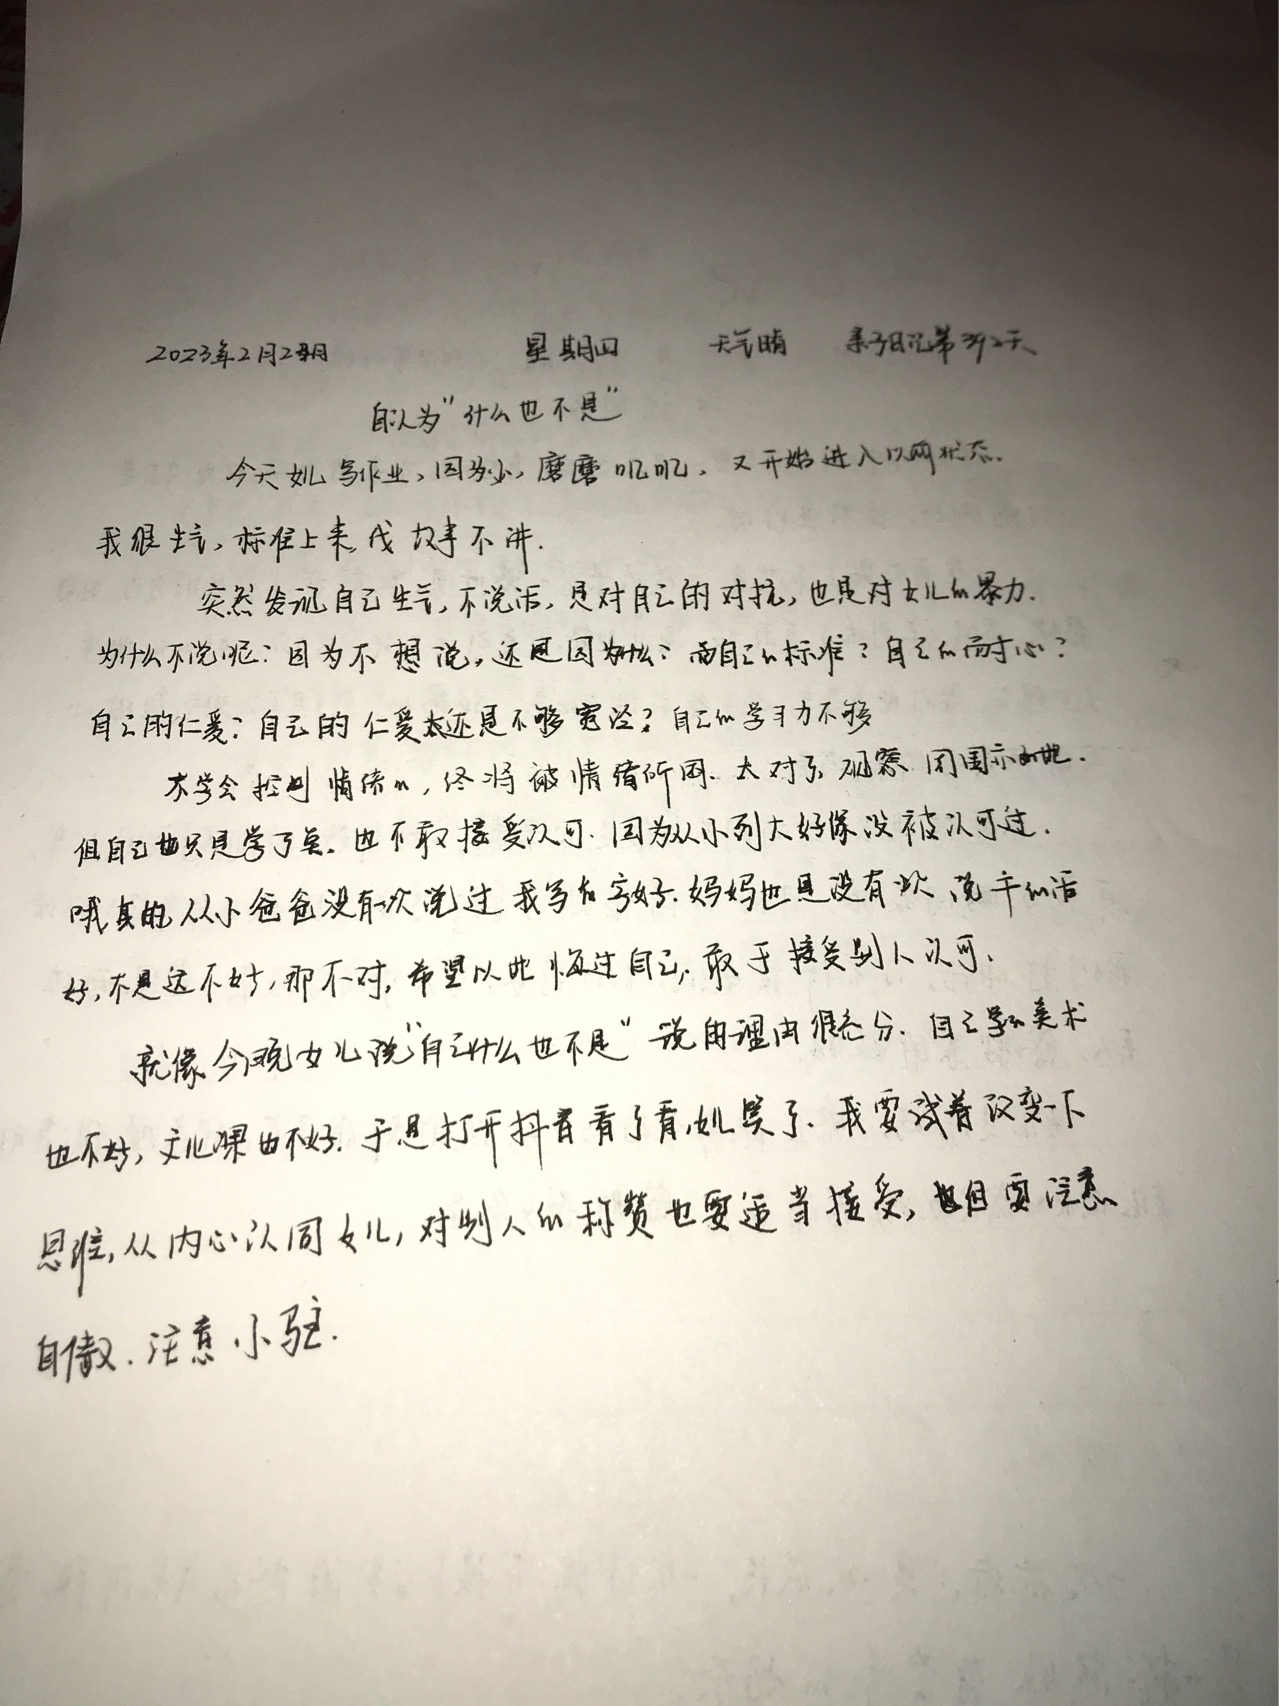 2023年2月2日 星期四 天气晴 亲子日记第392天
自认为“什么也不是”
今天女儿写作业，因为小，磨磨叽叽，又开始进入以前状态.
我很生气，标准上来，戌故事不讲.
突然发现自己生气，不说话，是对自己的对抗，也是对女儿的暴力.
为什么不说呢？因为不想说，还是因为什么？而自己的标准？自己的耐心？
自己的仁爱？自己的仁爱还是不够宽泛？自己的学习力不够
不学会控制情绪，终将被情绪所困. 太对了，观察周围亦如此.
但自己也只是学了点. 也不敢接受认可. 因为从小到大好像没被认可过.
哦真的从小爸爸没有一次说过我写的字好. 妈妈也是没有一次说干的活
好，不是这不好，那不对. 希望以此悔过自己，敢于接受别人认可.
就像今晚女儿说“自己什么也不是”说的理由很充分. 自己学的美术
也不好，文化课也不好. 于是打开抖音看了看，女儿笑了. 我要试着改变一下
思维，从内心认同女儿，对别人的称赞也要适当接受，但要注意
自傲. 注意小驻.